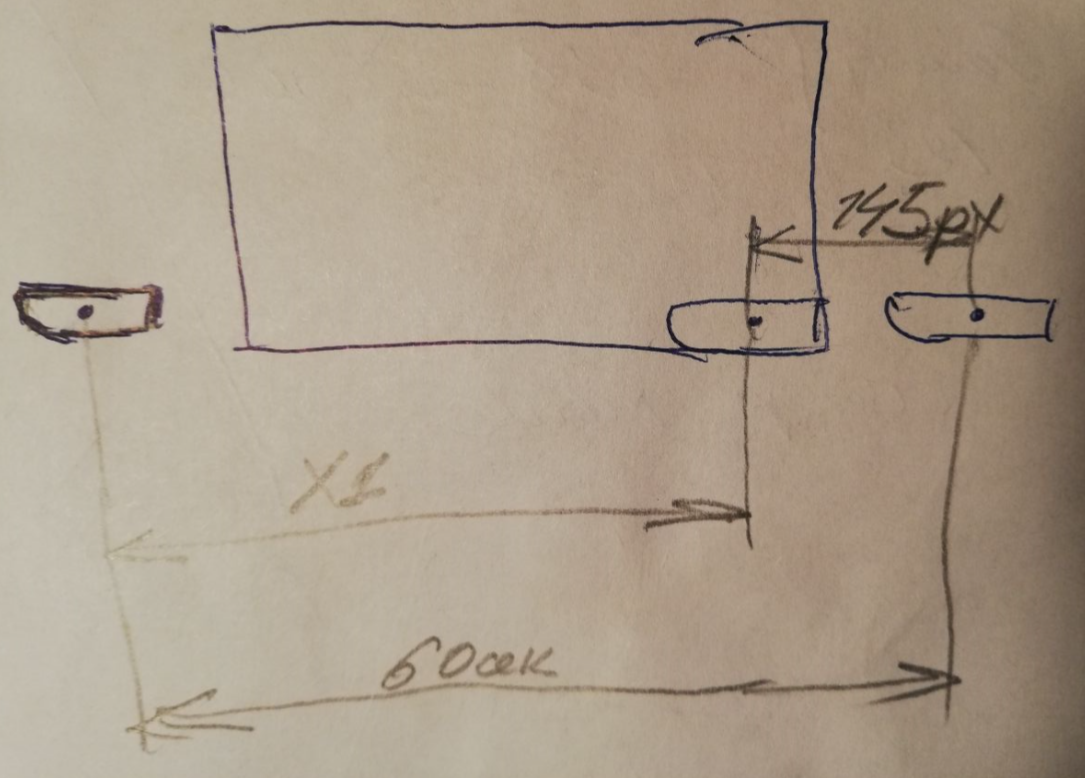 145px
X1
60сек